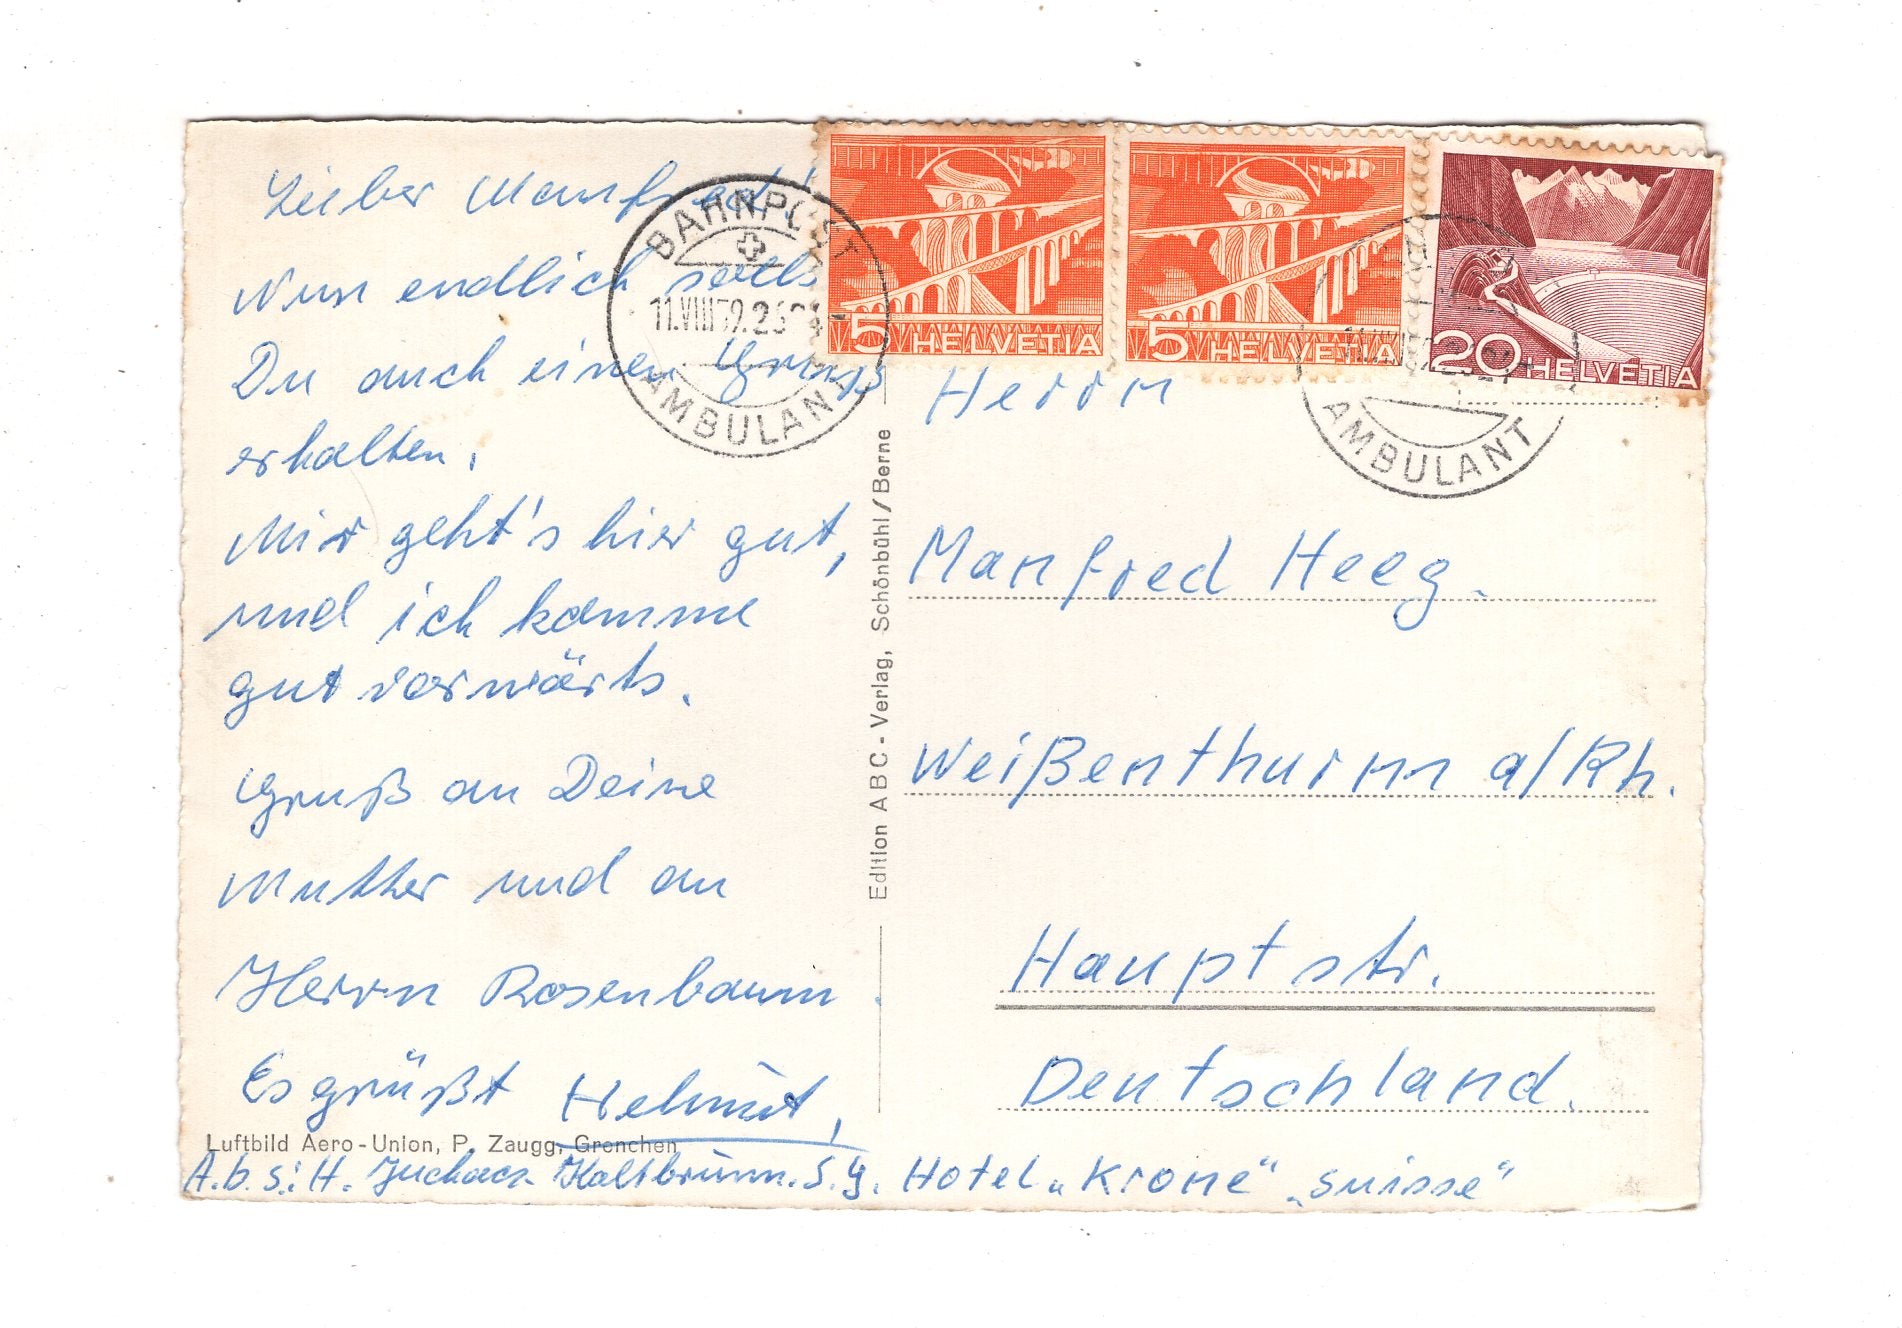 Lieber Manfred!
Nun endlich sollst
Du auch einen Gruß
erhalten.
Mir geht's hier gut,
und ich komme
gut vorwärts.
Gruß an Deine
Mutter und an
Herrn Rosenbaum.
Es grüßt Helmut,
Luftbild Aero-Union, P. Zaugg, Grenchen
A.b.s.: H. Kaltbrunn. S.G. Hotel „Krone" „Suisse"
Edition ABC - Verlag, Schönbühl/Berne
BAHNPOST
11.VIII 59.
AMBULANT
5 HELVETIA
5 HELVETIA
20 HELVETIA
AMBULANT
Herrn
Manfred Heeg.
Weißenthurm a/Rh.
Hauptstr.
Deutschland.